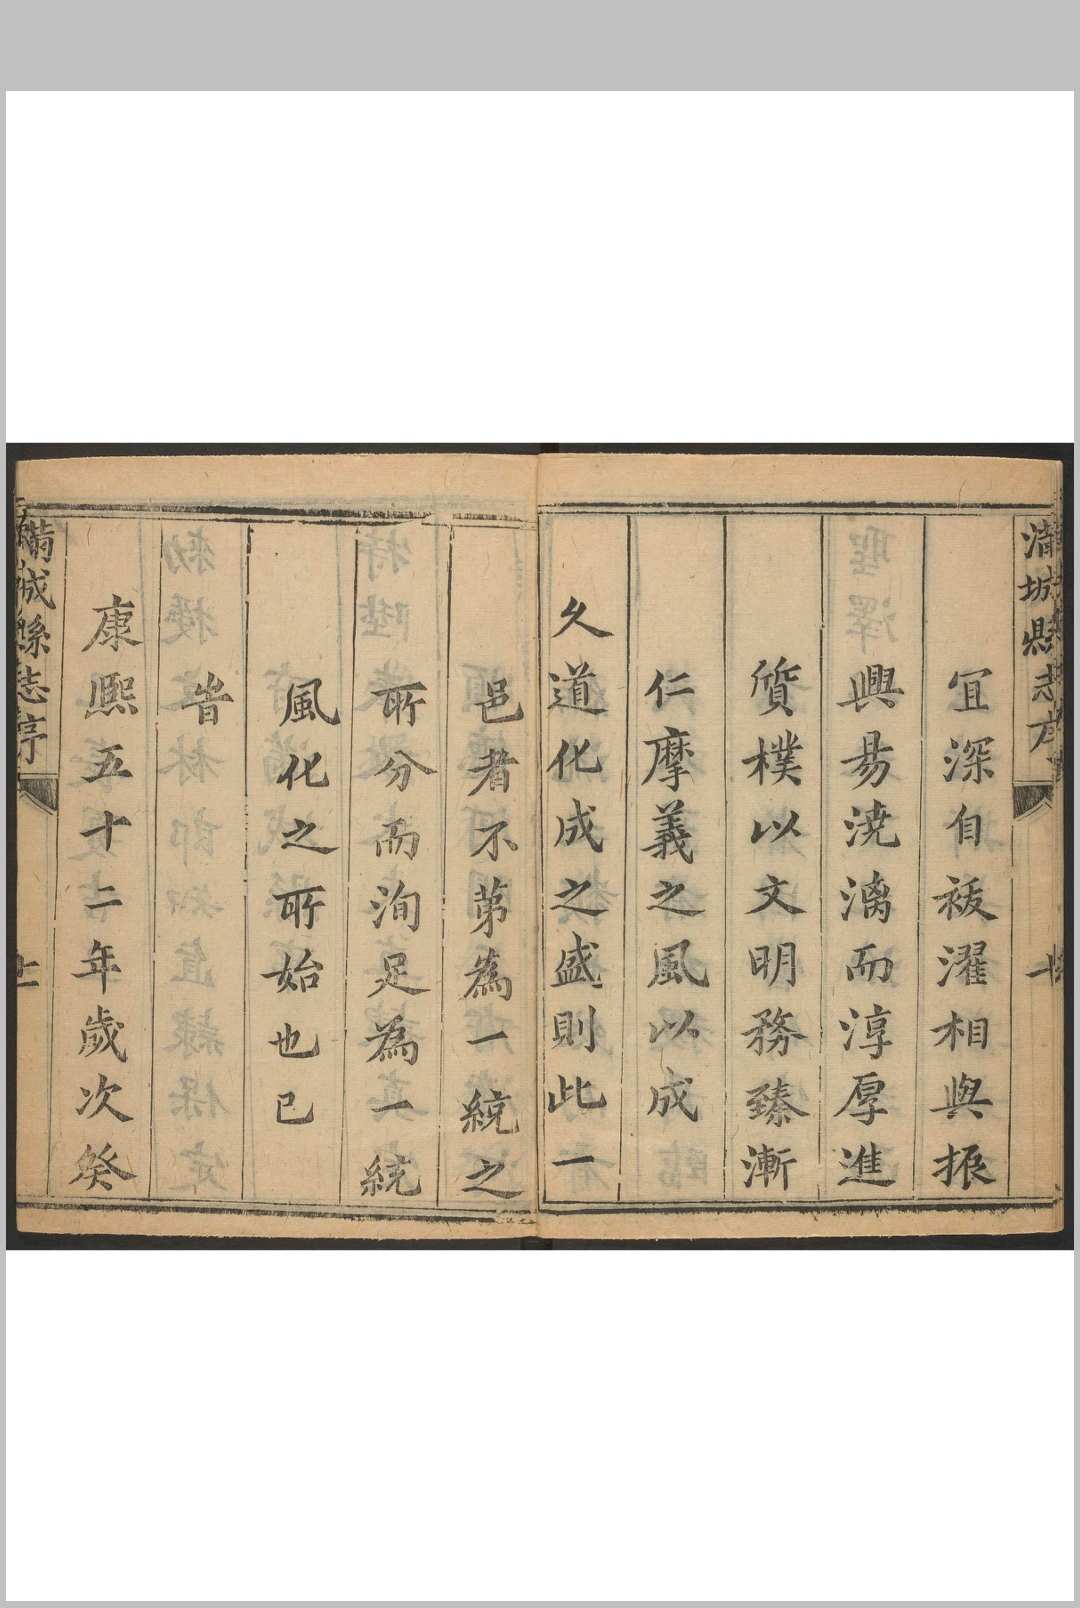 滿城縣志序
宜深自袚濯相與振
興昜澆漓而淳厚進
質樸以文明務臻漸
仁摩義之風以成
久道化成之盛則此一
邑者不第為一統之
所分而洵足為一統
風化之所始也已
旹
康熈五十二年歲次癸
滿城縣志序